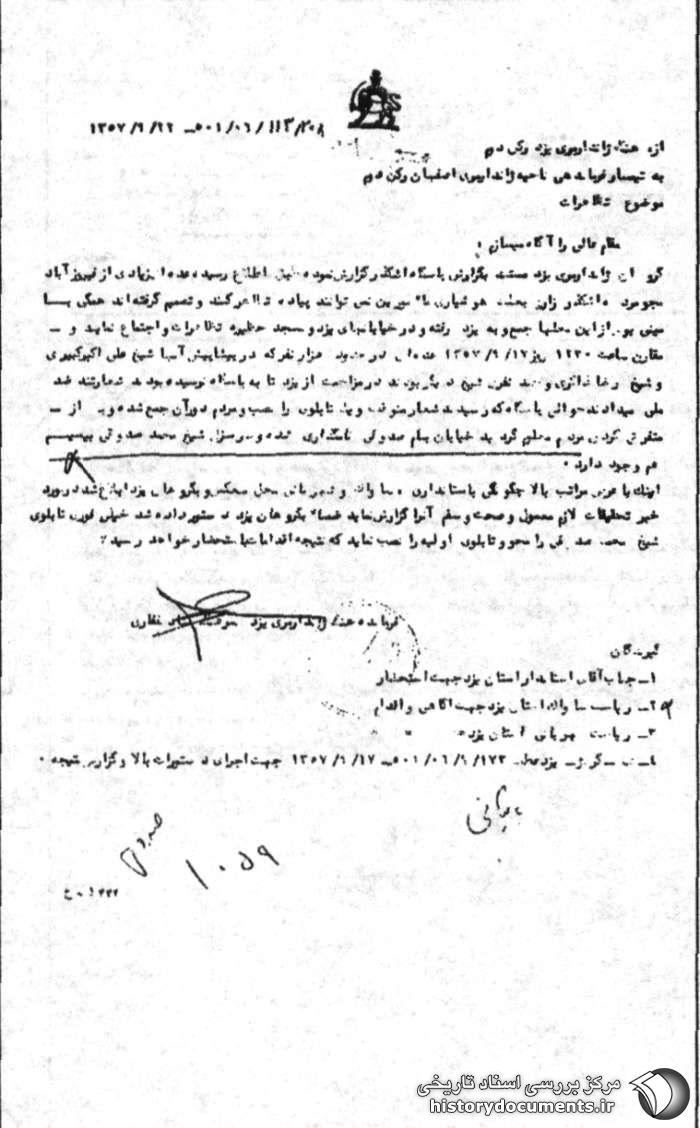 ۵۰۱/۰۶/۱۱۳/۲۰۸ـ ۱۳۵۷/۶/۲۲
از: هنگ ژاندارمری یزد رکن دوم
به تیمسار فرماندهی ناحیه ژاندارمری اصفهان رکن دوم
موضوع تظاهرات
مقام عالی را آگاه میسازد:
ژاندارمری یزد بگزارش پاسگاه اشکذر گزارش نموده اطلاع رسیده عده زیادی از فیروزآباد
مجومرد اشکذر زارچ بعلت هوشیاری مأمورین نمی توانند پیاده تظاهر کنند و تصمیم گرفته‌اند همگی بــا
از این محلها جمع و به یزد رفته و در خیابانهای یزد و مسجد حظیره تظاهرات و اجتماع نمایند و ـ
مقارن ساعت ۱۲۳۰ روز ۱۳۵۷/۶/۱۷ در حدود هزار نفر که در پیشاپیش آنها شیخ علی اکبر
و شیخ رضا و چند نفر شیخ دیگر بودند در مراجعت از یزد تا به پاسگاه نرسیده بودند شعارهائی ضد
ملی میدادند حوالی پاسگاه که رسیدند شعار متوقف و یک تابلوی را نصب و مردم دور آن جمع شده و از ـ
متفرق کردن مردم معلوم گردید خیابان بنام صدوقی نامگذاری شده و سر منزل شیخ محمد صدوقی
هم وجود دارد.
اینک با عرض مراتب بالا چگونگی باستانداری ساواک و شهربانی محل منعکس و بگروهان یزد ابلاغ شد در مورد
خبر تحقیقات لازم معمول و صحت و سقم آنرا گزارش نماید ضمناً بگروهان یزد دستور داده شد خیلی فوری تابلوی
شیخ محمد صدوقی را محو و تابلوی اولیه را نصب نماید که نتیجه اقدامات باستحضار خواهد رسید.
فرمانده هنگ ژاندارمری یزد غفاری
گیرندگان
۱ـ جناب آقای استاندار استان یزد جهت استحضار
۲ـ ریاست ساواک استان یزد جهت آگاهی و اقدام
۳ـ ریاست شهربانی استان یزد " "
۴ـ یزد ۵۰۱/۰۶/۶/۱۷۳ـ ۱۳۵۷/۶/۱۷ جهت اجرای دستورات بالا و گزارش نتیجه.
بایگانی
صدوقی
۱۰۵۹
مرکز بررسی اسناد تاریخی
historydocuments.ir